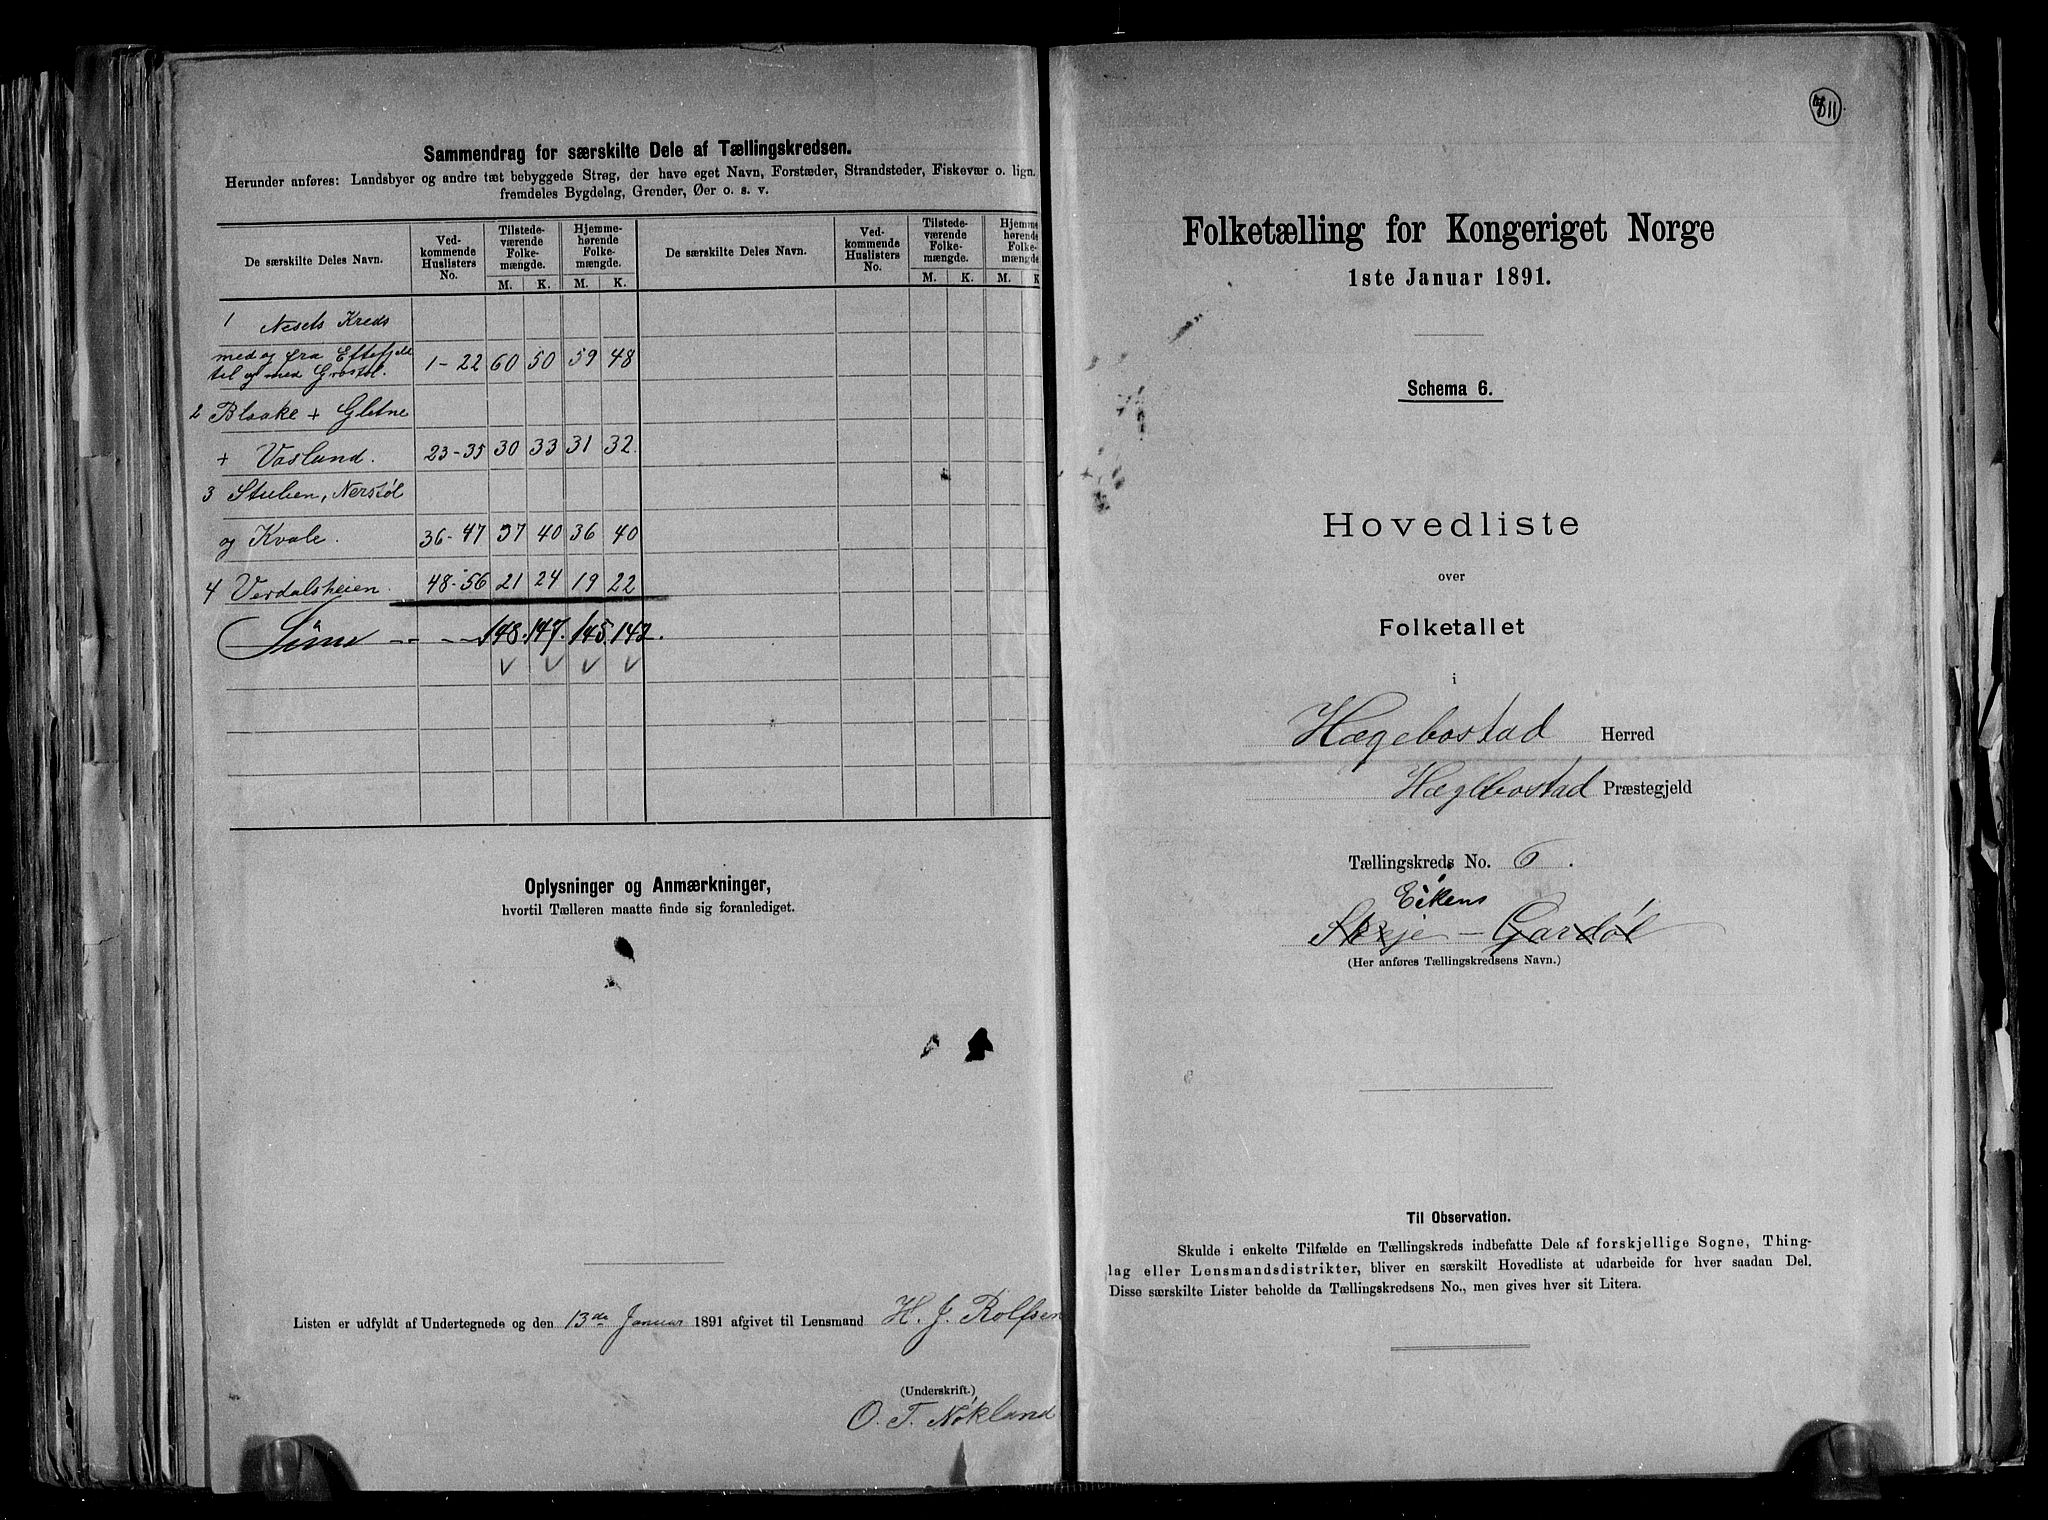 Sammendrag for særskilte Dele af Tællingskredsen.
Herunder anføres: Landsbyer og andre tæt bebyggede Strøg, der have eget Navn, Forstæder, Strandsteder, Fiskevær o. lign.
fremdeles Bygdelag, Grender, Øer o. s. v.
De særskilte Deles Navn. Ved-kommende Huslisters No. Tilstede-værende Folke-mængde. Hjemme-hørende Folke-mængde. De særskilte Deles Navn. Ved-kommende Huslisters No. Tilstede-værende Folke-mængde. Hjemme-hørende Folke-mængde.
M. K. M. K. M. K. M. K
1 Nesets Kreds
med og fra Eftefjeld
til og med Grostøl. 1-22 60 50 59 48
2 Blaake + Gletne
+ Vasland. 23-35 30 33 31 32.
3 Stulien, Nerstøl
og Kvale. 36-47 37 40 36 40
4 Verdalsheien. 48-56 21 24 19 22
Sum 148. 147. 145. 142.
Oplysninger og Anmærkninger,
hvortil Tælleren maatte finde sig foranlediget.
Listen er udfyldt af Undertegnede og den 13de Januar 1891 afgivet til Lensmand H. J. Rolfsen
(Underskrift.)
O. T. Nøkland
Folketælling for Kongeriget Norge
1ste Januar 1891.
Schema 6.
Hovedliste
over
Folketallet
i
Hægebostad Herred
Hægebostad Præstegjeld
Tællingskreds No. 6.
Eikens
Skeje - Gardøl
(Her anføres Tællingskredsens Navn.)
Til Observation.
Skulde i enkelte Tilfælde en Tællingskreds indbefatte Dele af forskjellige Sogne, Thing-
lag eller Lensmandsdistrikter, bliver en særskilt Hovedliste at udarbeide for hver saadan Del.
Disse særskilte Lister beholde da Tællingskredsens No., men gives hver sit Litera.